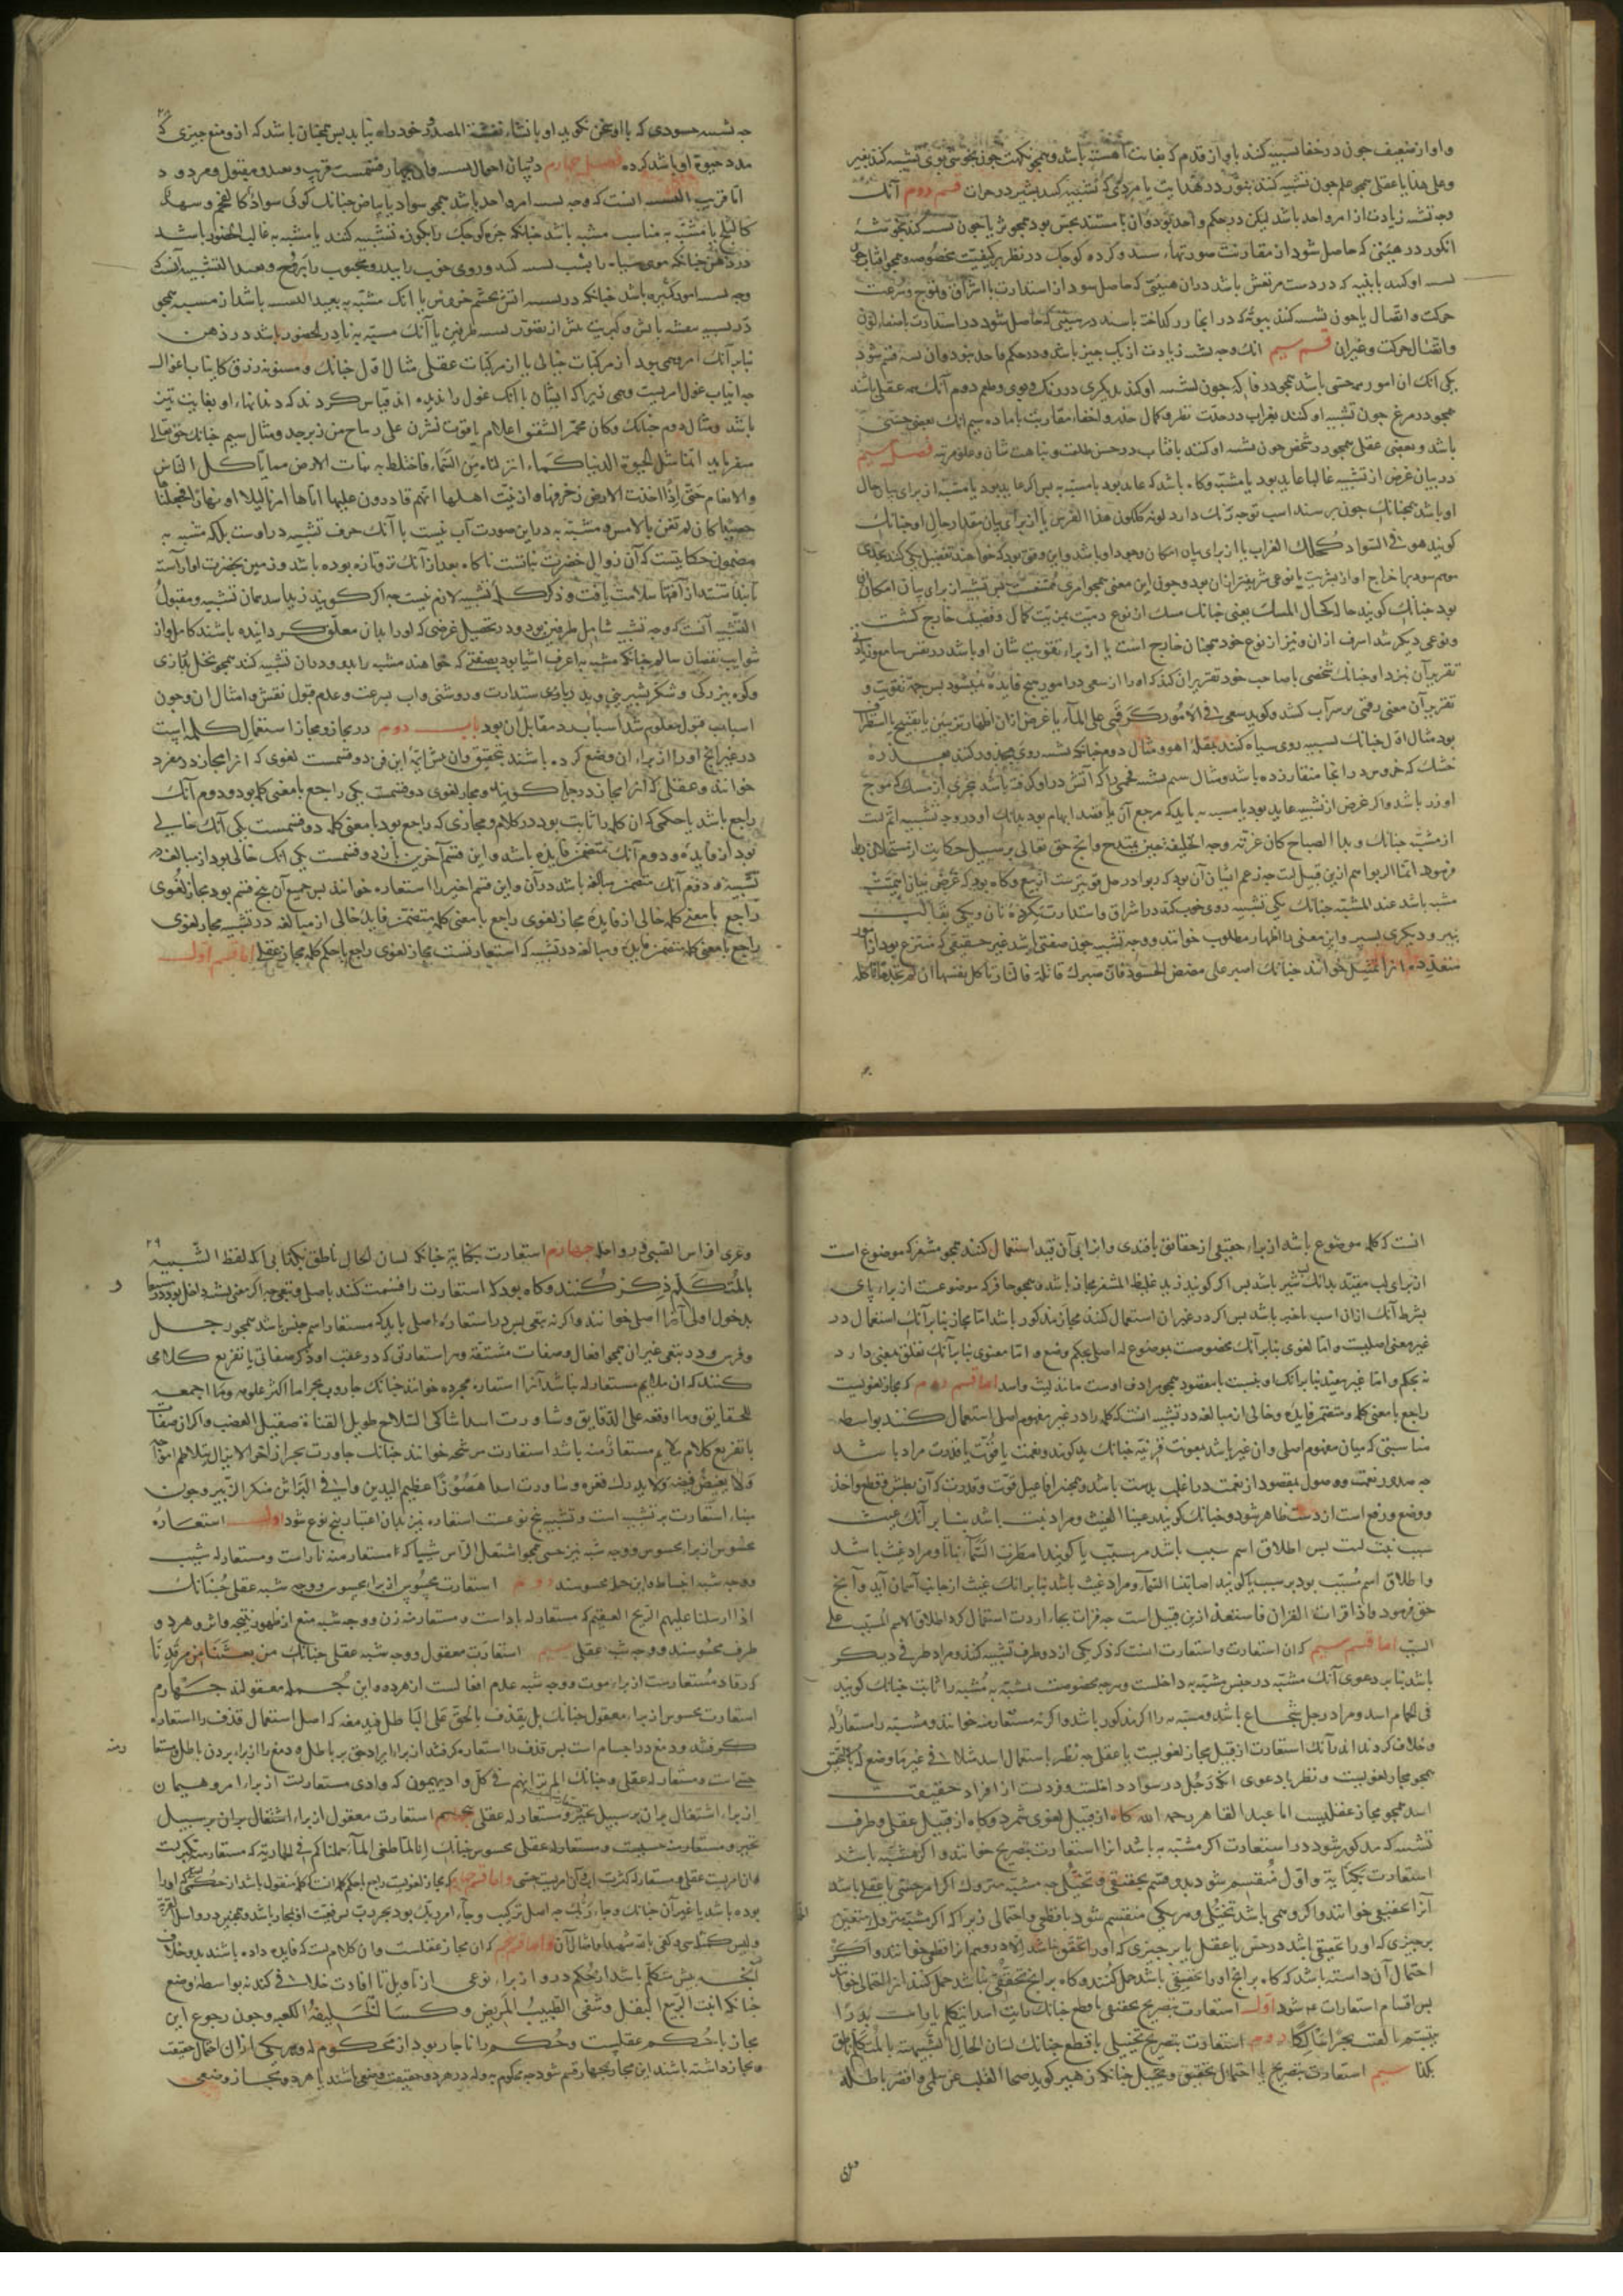 واواز ضعیف چون در خفا تشبیه کنند باواز قدم که بغایت آهسته باشد و همچو نکهت چون بخوشی بوی تشبیه کنند بعنبر
وعلی هذا یا عقلی همچو علم چون تشبیه کنند بنور در هدایت یا مردی که تشبیه کنند بشیر در جرات قسم دوم آنک
وجه تشبه زیادت از امر واحد باشد لیکن در حکم واحد بود و آن یا مستند بحس بود همچو ثریا چون تشبیه کنند بخوشه
انکور در هیئتی که حاصل شود از مقارنت صورتهاء کرده کوچک در نظر بر کیفیت مخصوصه و همچو افتاب چون
او کنند باینه که در دست مرتعش باشد در ان هیئتی که حاصل شود از استدارت با اشراق و تموج و سرعت
حرکت و اتصال یا چون تشبیه کنند ببوته که در انجا زر کداخته باشد در هیئتی که حاصل شود در استدارت با صفاء لون
واتصال حرکت وغیران قسم سیم انک وجه تشبه زیادت از یک چیز باشد و در حکم واحد نبود و ان سه قسم شود
یکی انک ان امور همه حسی باشد همچو در فاکهه چون تشبیه او کنند بدیکری در رنک و بوی و طعم دوم آنک همه عقلی باشد
همچو در مرغ چون تشبیه او کنند بغراب در حدت نظر و کمال حذر و اخفاء سیم انک بعضی حسی
باشد و بعضی عقلی همچو در شخص چون تشبیه او کنند بافتاب در حسن طلعت و نباهت شان و علو مرتبه فصل سیم
در بیان غرض از تشبیه غالبا عاید بود یا مشبه وکاه باشد که عاید بود با مشبه به پس اکر عاید بود با مشبه از برای بیان حال
او باشد همچنانک چون پرسند اسب تو چه رنک دارد یا از برای بیان مقدار حال او چنانک
کویند هو فی السواد کحلک الغراب یا از برای بیان امکان وجود او باشد و این وقتی بود که خواهند تفضیل یکی کنند بحدی
بود چنانک کویند حاله کحال المسک یعنی چنانک مسک از نوع دمیت بمزیت کمال و فضیلت خارج کشت
ونوعی دیکر شد اشرف از ان و نیز از نوع خود همچنان خارج است یا از براء تقویت شان او باشد در نفس سامع و زیادتی
تقریر آن نزد او چنانک شخصی با صاحب خود تقریر ان کند که او را از سعی در امور هیچ فایده نمیشود پس جهت تقویت و
تقریر آن معنی رقمی بر سر آب کشد و کوید سعی فی الامور کرقمی علی الماء یا غرض از ان اظهار تزیین یا تقبیح یا استطراف
بود مثال اول چنانک تشبیه روی سیاه کنند بمقلهٔ اهو و مثال دوم چنانکه تشبیه روی مجدور کنند بعذره
خشک که خروس در انجا منقار زده باشد و مثال سیم تشبیه فحمی را که آتش در او کرفته باشد ببحری از مسک که موج
او زر باشد و اکر غرض از تشبیه عاید بود با مشبه به باید که مرجع آن با قصد ایهام بود بدانک او در وجه تشبیه اتم است
از مشبه چنانک وبدا الصباح کان غرته وجه الخلیفة حین یمتدح وانچ حق تعالی بر سبیل حکایت از مستحلان ربا
فرمود انما الربوا
مشبه باشد عند المشبه چنانک یکی تشبیه روی خوب کند در اشراق و استدارت بکردهٔ نان و یکی بقالب
پنیر و دیکری بسپر و این معنی را اظهار مطلوب خوانند و وجه تشبیه چون صفتی باشد غیر حقیقی که منتزع بود از امور
متعدده انرا تمثیل خوانند چنانک اصبر علی مضض الحسود فان صبرک قاتله فالنار تاکل نفسها ان لم تجد ما تاکله
۲۸
چه تشبیه حسودی که با او سخن نکوید او با نشاء نفثة المصدور خود راه نیابد پس همچنان باشد که از و منع چیزی که
مدد حیوة او باشد کرده فصل چهارم در بیان احوال تشبیه وآن چهار قسمست قریب و بعید و مقبول و مردود
اما قریب التشبیه انست که وجه تشبیه امر واحد باشد همچو سواد یا بیاض چنانک کوئی سوادٌ کالفحم
کالثلج یا مشبه به مناسب مشبه باشد چنانکه جرهٔ کوچک را بکوزه تشبیه کنند یا مشبه به غالب الحضور باشد
در ذهن چنانکه موی سیاه را بشب تشبیه کنند و روی خوب را ببدر و محبوب را بروح و بعید التشبیه آنست که
وجه تشبیه امور کثیره باشد چنانکه در تشبیه اتش بچشم خروس یا انک مشبه به بعید النسبه باشد از مشبه همچو
در تشبیه بنفشه باتش و کبریت پیش از تصور تشبیه طرفین یا آنک مشبه به نادر الحضور باشد در ذهن
بنابر آنک امر وهمی بود از مرکبات خیالی یا از مرکبات عقلی مثال اول چنانک ومسنونة زرق کانیاب اغوال
چه انیاب غول امریست وهمی زیرا که ایشان با آنک غول را ندیده اند قیاس کردند که دندانهاء او بغایت تیز
باشد و مثال دوم چنانک وکان محمر الشقیق اعلام یاقوت نشرن علی رماح من زبرجد ومثال سیم چنانک حق تعالی
میفرماید انما مثل الحیوة الدنیا کماء انزلناه من السماء فاختلط به نبات الارض مما یاکل الناس
والانعام حتی إذا اخذت الارض زخرفها وازینت وظن اهلها انهم قادرون علیها اتاها امرنا لیلا او نهارا فجعلناها
حصیدا کان لم تغن بالامس ومشبه به در این صورت آب نیست با آنک حرف تشبیه در اوست بلکه مشبه به
مضمون حکایتست که آن زوال خضرت نباتست ناکاه بعد از آنک تر و تازه بوده باشد و زمین بخضرت او آراسته
التشبیه آنست که وجه تشبیه شامل طرفین بود و در تحصیل غرضی که او را بدان معلق کردانیده باشند کامل و از
شوایب نقصان سالم چنانکه مشبه به اعرف اشیا بود بصفتی که خواهند مشبه را بدو در ان تشبیه کنند
وکوه ببزرکی و شکر بشیرینی و بدر در استدارت و روشنی و اب بسرعت و عدم قبول نقش و امثال ان و چون
اسباب قبول معلوم شد اسباب رد مقابل آن بود باب دوم در مجاز و مجاز استعمال کلمه است
در غیر انچ او را از براء ان وضع کرده باشند بتحقیق وان بقرینه این فن دو قسمست لغوی که انرا مجاز در مفرد
خوانند و عقلی که انرا مجاز در جمله کویند و مجاز لغوی دو قسمست یکی راجع با معنی کلمه بود و دوم آنک
راجع باشد با حکمی که ان کلمه را ثابت بود در کلام و مجازی که راجع بود با معنی کلمه دو قسمست یکی آنک خالی
بود از فایده و دوم آنک متضمن فایده باشد و این قسم آخرین باز دو قسمست یکی انک خالی بود از مبالغه در
تشبیه و دوم آنک متضمن مبالغه باشد در آن و این قسم اخیر را استعاره خوانند پس جمیع آن پنج قسم بود مجاز لغوی
راجع با معنی کلمه خالی از فایده مجاز لغوی راجع با معنی کلمه متضمن فایده خالی از مبالغه در تشبیه مجاز لغوی
راجع با معنی کلمه متضمن فایده و مبالغه در تشبیه که استعارتست مجاز لغوی راجع با حکم کلمه مجاز عقلی اما قسم اول
انست که کلمه موضوع باشد از براء حقیقی از حقایق با قیدی و انرا بی آن قید استعمال کنند همچو مشفر که موضوع است
از برای لب مقید بدانک شتر باشد پس اکر کویند زید غلیظ المشفر مجاز باشد و همچو حافر که موضوعست از براء پای
بشرط آنک از ان اسب یا خر باشد پس اکر در غیر ان استعمال کنند مجاز مذکور باشد اما مجاز بنابر آنک استعمال در
غیر معنی اصلیست و اما لغوی بنابر آنک مخصوصست بموضوع له اصلی بحکم وضع و اما معنوی بنابر آنک تعلق بمعنی دارد
نه بحکم و اما غیر مفید بنابر آنک او بنسبت با مقصود همچو مرادف اوست مانند لیث و اسد اما قسم دوم که مجاز لغویست
راجع با معنی کلمه و متضمن فایده و خالی از مبالغه در تشبیه انست که کلمه را در غیر مفهوم اصلی استعمال کنند بواسطهٔ
مناسبتی که میان مفهوم اصلی و ان غیر باشد بمعونت قرینه چنانک ید کویند و نعمت یا قوت یا قدرت مراد باشد
چه صدور نعمت و وصول بمقصود از نعمت در اغلب بدست باشد و همچنین افاعیل قوت و قدرت که آن بطش و قطع و اخذ
ووضع و رفع است از دست ظاهر شود و چنانک کویند رعینا الغیث و مراد نبت باشد بنابر آنک غیث
سبب نبت است پس اطلاق اسم سبب باشد بر مسبب یا کویند امطرت السماء نباتا و مراد غیث باشد
و اطلاق اسم مسبب بود بر سبب یا کویند اصابتنا السماء و مراد غیث باشد بنابر انک غیث از جانب آسمان آید و آنچ
حق فرمود فاذا قرات القران فاستعذ ازین قبیل است چه قرات بجاء اردت استعمال کرد اطلاقا لاسم المسبب علی
السبب اما قسم سیم که ان استعارت و استعارت انست که ذکر یکی از دو طرف تشبیه کنند و مراد طرفی دیکر
باشد بنابر دعوی آنک مشبه در جنس مشبه به داخلست و هرچه بخصوصیت مشبه به مشبه را ثابت چنانک کویند
فی الحمام اسد ومراد رجل شجاع باشد و مشبه به را اکر مذکور باشد و اکر نه مستعار منه خوانند و مشبه را مستعار له
وخلاف کردند اند در آنک استعارت از قبیل مجاز لغویست یا عقلی چه نظر باستعمال اسد مثلا فی غیر ما وضع له بالتحقیق
همچو مجاز لغویست و نظر با دعوی انک رجل در سواد داخلست و فردیست از افراد حقیقت
اسد همچو مجاز عقلیست اما عبد القاهر رحمه الله کاه از قبیل لغوی شمرد و کاه از قبیل عقلی و طرف
تشبیه که مذکور شود در استعارت اکر مشبه به باشد انرا استعارت بتصریح خوانند و اکر مشبه باشد
استعارت بکنایه و اول منقسم شود بدو قسم بحقیقی و تخیلی چه مشبه متروک اکر امر حسی یا عقلی باشد
آنرا تحقیقی خوانند و اکر وهمی باشد تخیلی و هر یکی منقسم شود با قطعی و احتمالی زیرا که اکر مشبه متروک متعین
بر چیزی که او را تحقیقی باشد در حس یا عقل یا بر چیزی که او را تحقق نباشد الا در وهم انرا قطعی خوانند و اکر
احتمال آن داشته باشد که کاه بر انچ او را تحقیقی باشد حمل کنند و کاه بر انچ تحقیقی نباشد حمل کنند انرا احتمالی خوانند
پس اقسام استعارات شود اول استعارت بتصریح تحقیقی با قطع چنانک رایت اسدا یتکلم یا رایت بدرا
یتبسم دوم استعارت بتصریح تخییلی با قطع چنانک لسان الحال الشبیهة بالمتکلم ناطق
بکذا سیم استعارت بتصریح با احتمال تحقیق و تخییل چنانکه زهیر کوید صحا القلب عن سلمی واقصر باطله
۲۹
وعری افراس الصبی ورواحله چهارم استعارت بکنایه چنانکه لسان الحال ناطق بکذا بی آنکه لفظ الشبیه
بالمتکلم ذکر کنند و کاه بود که استعارت را قسمت کنند باصلی و تبعی چه اکر معنی تشبیه داخل بود در مستعار
بدخول اولی آنرا اصلی خوانند و اکر نه تبعی پس در استعارهٔ اصلی باید که مستعار اسم جنس باشد همچو رجل
وفرس و در تبعی غیر ان همچو افعال و صفات مشتقه و هر استعارتی که در عقب او ذکر صفاتی یا تفریع کلامی
کنند که ان ملایم مستعار له باشد آنرا استعاره مجرده خوانند چنانک جاورت بحرا ما اکثر علومه وما اجمعه
للحقایق وما اوقعه علی الدقایق وشاورت اسدا شاکی السلاح طویل القناة صقیل العضب و اکر ان صفات
یا تفریع کلام ملایم مستعار منه باشد استعارت مرشحه خوانند چنانک جاورت بحرا زاخرا لایزال یتلاطم امواجه
ولا یغیض فیضه ولا یدرک قعره وشاورت اسدا هصورا عظیم الیدین وافی البراثن منکر الزئیر و چون
بناء استعارت بر تشبیه است و تشبیه پنج نوعست استعاره نیز بدان اعتبار پنج نوع شود اول استعاره
محسوس از براء محسوس و وجه شبه نیز حسی همچو اشتعل الراس شیبا که مستعار منه نار است و مستعار له شیب
ووجه شبه انبساط و این جمله محسوسند دوم استعارت محسوس از براء محسوس و وجه شبه عقلی چنانک
اذ ارسلنا علیهم الریح العقیم که مستعار له باد است و مستعار منه زن و وجه شبه منع از ظهور نتیجه و اثر و هر دو
طرف محسوسند و وجه شبه عقلی سیم استعارت معقول و وجه شبه عقلی چنانک من بعثنا من مرقدنا
که رقاد مستعارست از براء موت و وجه شبه عدم افعالست از هر دو و این جمله معقولند چهارم
استعارت محسوس از براء معقول چنانک بل نقذف بالحق علی الباطل فیدمغه که اصل استعمال قذف را استعاره
کرفتند و دمغ در اجسام است پس قذف را استعاره کرفتند از براء ایراد حق بر باطل و دمغ را از براء بردن باطل و مستعار منه
حسی است و مستعار له عقلی و چنانک الم تر انهم فی کل واد یهیمون که وادی مستعارست از براء امر و هیمان
از براء اشتغال بران بر سبیل تحیر و مستعار له عقلی پنجم استعارت معقول از براء اشتغال بران بر سبیل
تحیر و مستعار منه حسیست و مستعار له عقلی بمحسوس چنانک انا لما طغی الماء حملناکم فی الجاریة که مستعار منه تکبرست
وان امریست عقلی و مستعار له کثرت آب و آن امریست حسی و اما قسم چهارم که مجاز لغویست راجع با حکم کلمه انست که کلمه منقول باشد از حکمی که او را
بوده باشد با غیر آن چنانک وجاء ربک چه اصل ترکیب وجاء امر ربک بود بجر رب پس رفعیت او مجاز باشد و همچنین در واسئل القریة
ولیس کمثله شیء وکفی بالله شهیدا وامثال آن واما قسم پنجم که ان مجاز عقلیست و ان کلامیست که فایده داده باشند بدو خلاف
آنچه پیش متکلم باشد از حکم در و از براء نوعی از تاویل تا افادت خلافی کند نه بواسطهٔ وضع
چنانکه انبت الربیع البقل وشفی الطبیب المریض وکسا الخلیفة الکعبه و چون رجوع این
مجاز با حکم عقلیست و حکم را ناچار بود از محکوم له و هر یکی از ان احتمال حقیقت
و مجاز داشته باشند این مجاز بچهار قسم شود چه محکوم به وله در هر دو حقیقت وضعی باشند یا هر دو مجاز وضعی